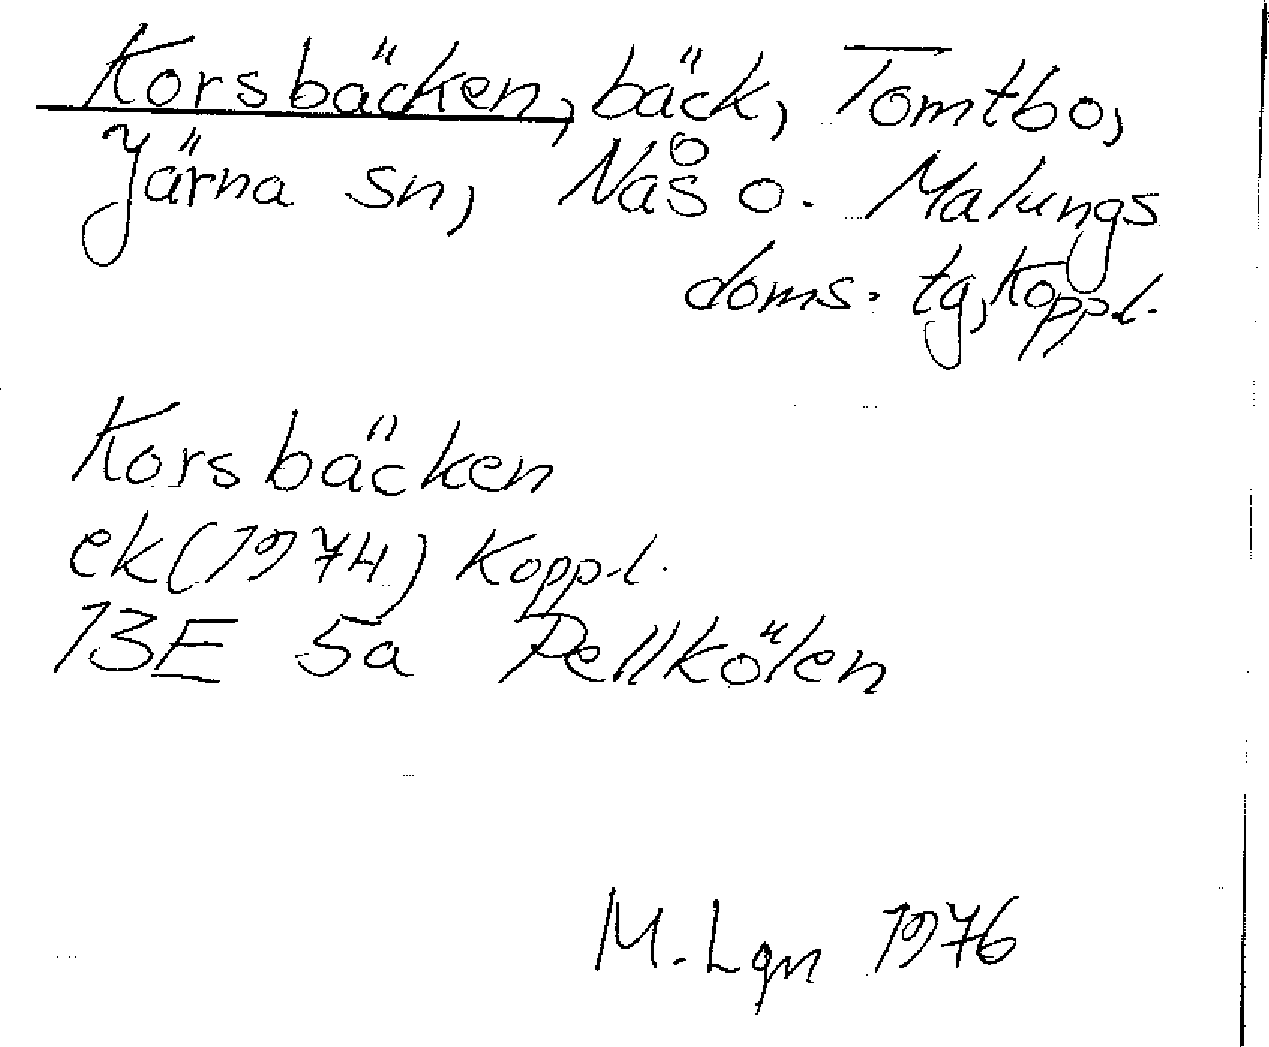 Korsbäcken, bäck, Tomtbo,
Järna sn, Nås o. Malungs
doms. tg, Koppl.
Korsbäcken
ek (1974) Koppl.
13E 5a Pellkölen
M. Lgn 1976